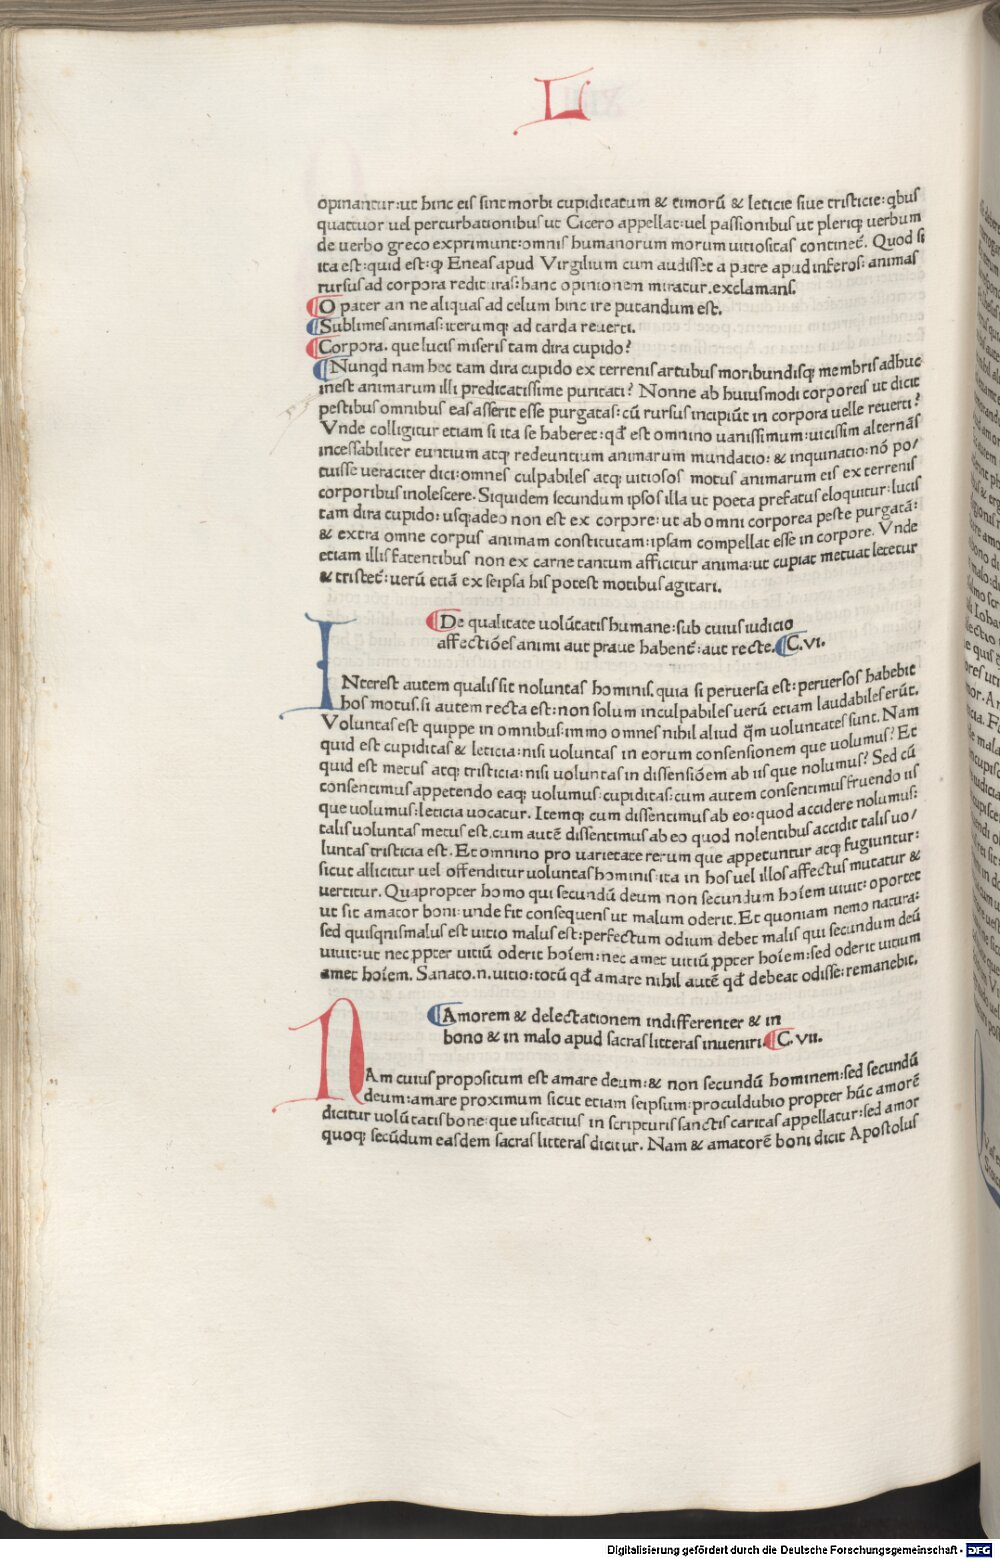 L
opinantur:ut hinc eis sint morbi cupiditatum & timorū & leticie siue tristicie:qbus
quattuor uel perturbationibus ut Cicero appellat:uel passionibus ut pleriqꝫ uerbum
de uerbo greco exprimunt:omnis humanorum morum uitiositas continet̄. Quod si
ita est:quid est:ꝙ Eneas apud Virgilium cum audisset a patre apud inferos: animas
rursus ad corpora redituras:hanc opinionem miratur.exclamans.
O pater an ne aliquas ad celum hinc ire putandum est.
Sublimes animas:iterumqꝫ ad tarda reuerti.
Corpora. que lucis miseris tam dira cupido?
Nunqd nam hec tam dira cupido ex terrenis artubus moribundisqꝫ membris adhuc
inest animarum illi predicatissime puritati? Nonne ab huiusmodi corporeis ut dicit
pestibus omnibus eas asserit esse purgatas: cū rursus incipiūt in corpora uelle reuerti?
Vnde colligitur etiam si ita se haberet:qđ est omnino uanissimum:uicissim alternās
incessabiliter euntium atqꝫ redeuntium animarum mundatio: & inquinatio:nō po/
tuisse ueraciter dici:omnes culpabiles atqꝫ uitiosos motus animarum eis ex terrenis
corporibus inolescere. Siquidem secundum ipsos illa ut poeta prefatus eloquitur:lucis
tam dira cupido: usqꝫadeo non est ex corpore:ut ab omni corporea peste purgatā:
& extra omne corpus animam constitutam:ipsam compellat esse in corpore. Vnde
etiam illis fatentibus non ex carne tantum afficitur anima:ut cupiat metuat letetur
& tristet̄: uerū etiā ex seipsa his potest motibus agitari.
De qualitate uolūtatis humane:sub cuius iudicio
affectiōes animi aut praue habent̄:aut recte. C.VI.
INterest autem qualis sit noluntas hominis.quia si peruersa est:peruersos habebit
hos motus.si autem recta est:non solum inculpabiles uerū etiam laudabiles erūt.
Voluntas est quippe in omnibus:immo omnes nihil aliud q̄m uoluntates sunt. Nam
quid est cupiditas & leticia:nisi uoluntas in eorum consensionem que uolumus? Et
quid est metus atqꝫ tristicia:nisi uoluntas in dissensiōem ab iis que nolumus? Sed cū
consentimus appetendo eaqꝫ uolumus:cupiditas:cum autem consentimus fruendo iis
que uolumus:leticia uocatur. Itemqꝫ cum dissentimus ab eo:quod accidere nolumus:
talis uoluntas metus est.cum autē dissentimus ab eo quod nolentibus accidit talis uo/
luntas tristicia est. Et omnino pro uarietate rerum que appetuntur atqꝫ fugiuntur:
sicut allicitur uel offenditur uoluntas hominis:ita in hos uel illos affectus mutatur &
uertitur. Quapropter homo qui secundū deum non secundum hoīem uiuit: oportet
ut sit amator boni:unde fit consequens ut malum oderit. Et quoniam nemo natura:
sed quisqnis malus est uitio malus est:perfectum odium debet malis qui secundum deū
uiuit:ut nec ꝓpter uitiū oderit hoīem:nec amet uitiū ꝓpter hoīem:sed oderit uitium
amet hoīem. Sanato.n.uitio:totū qđ amare nihil autē qđ debeat odisse:remanebit.
Amorem & delectationem indifferenter & in
bono & in malo apud sacras litteras inueniri. C.VII.
NAm cuius propositum est amare deum:& non secundū hominem:sed secundū
deum:amare proximum sicut etiam seipsum:proculdubio propter hūc amorē
dicitur uolūtatis bone:que usitatius in scripturis sanctis caritas appellatur:sed amor
quoqꝫ secūdum easdem sacras litteras dicitur. Nam & amatorē boni dicit Apostolus
Digitalisierung gefördert durch die Deutsche Forschungsgemeinschaft - DFG